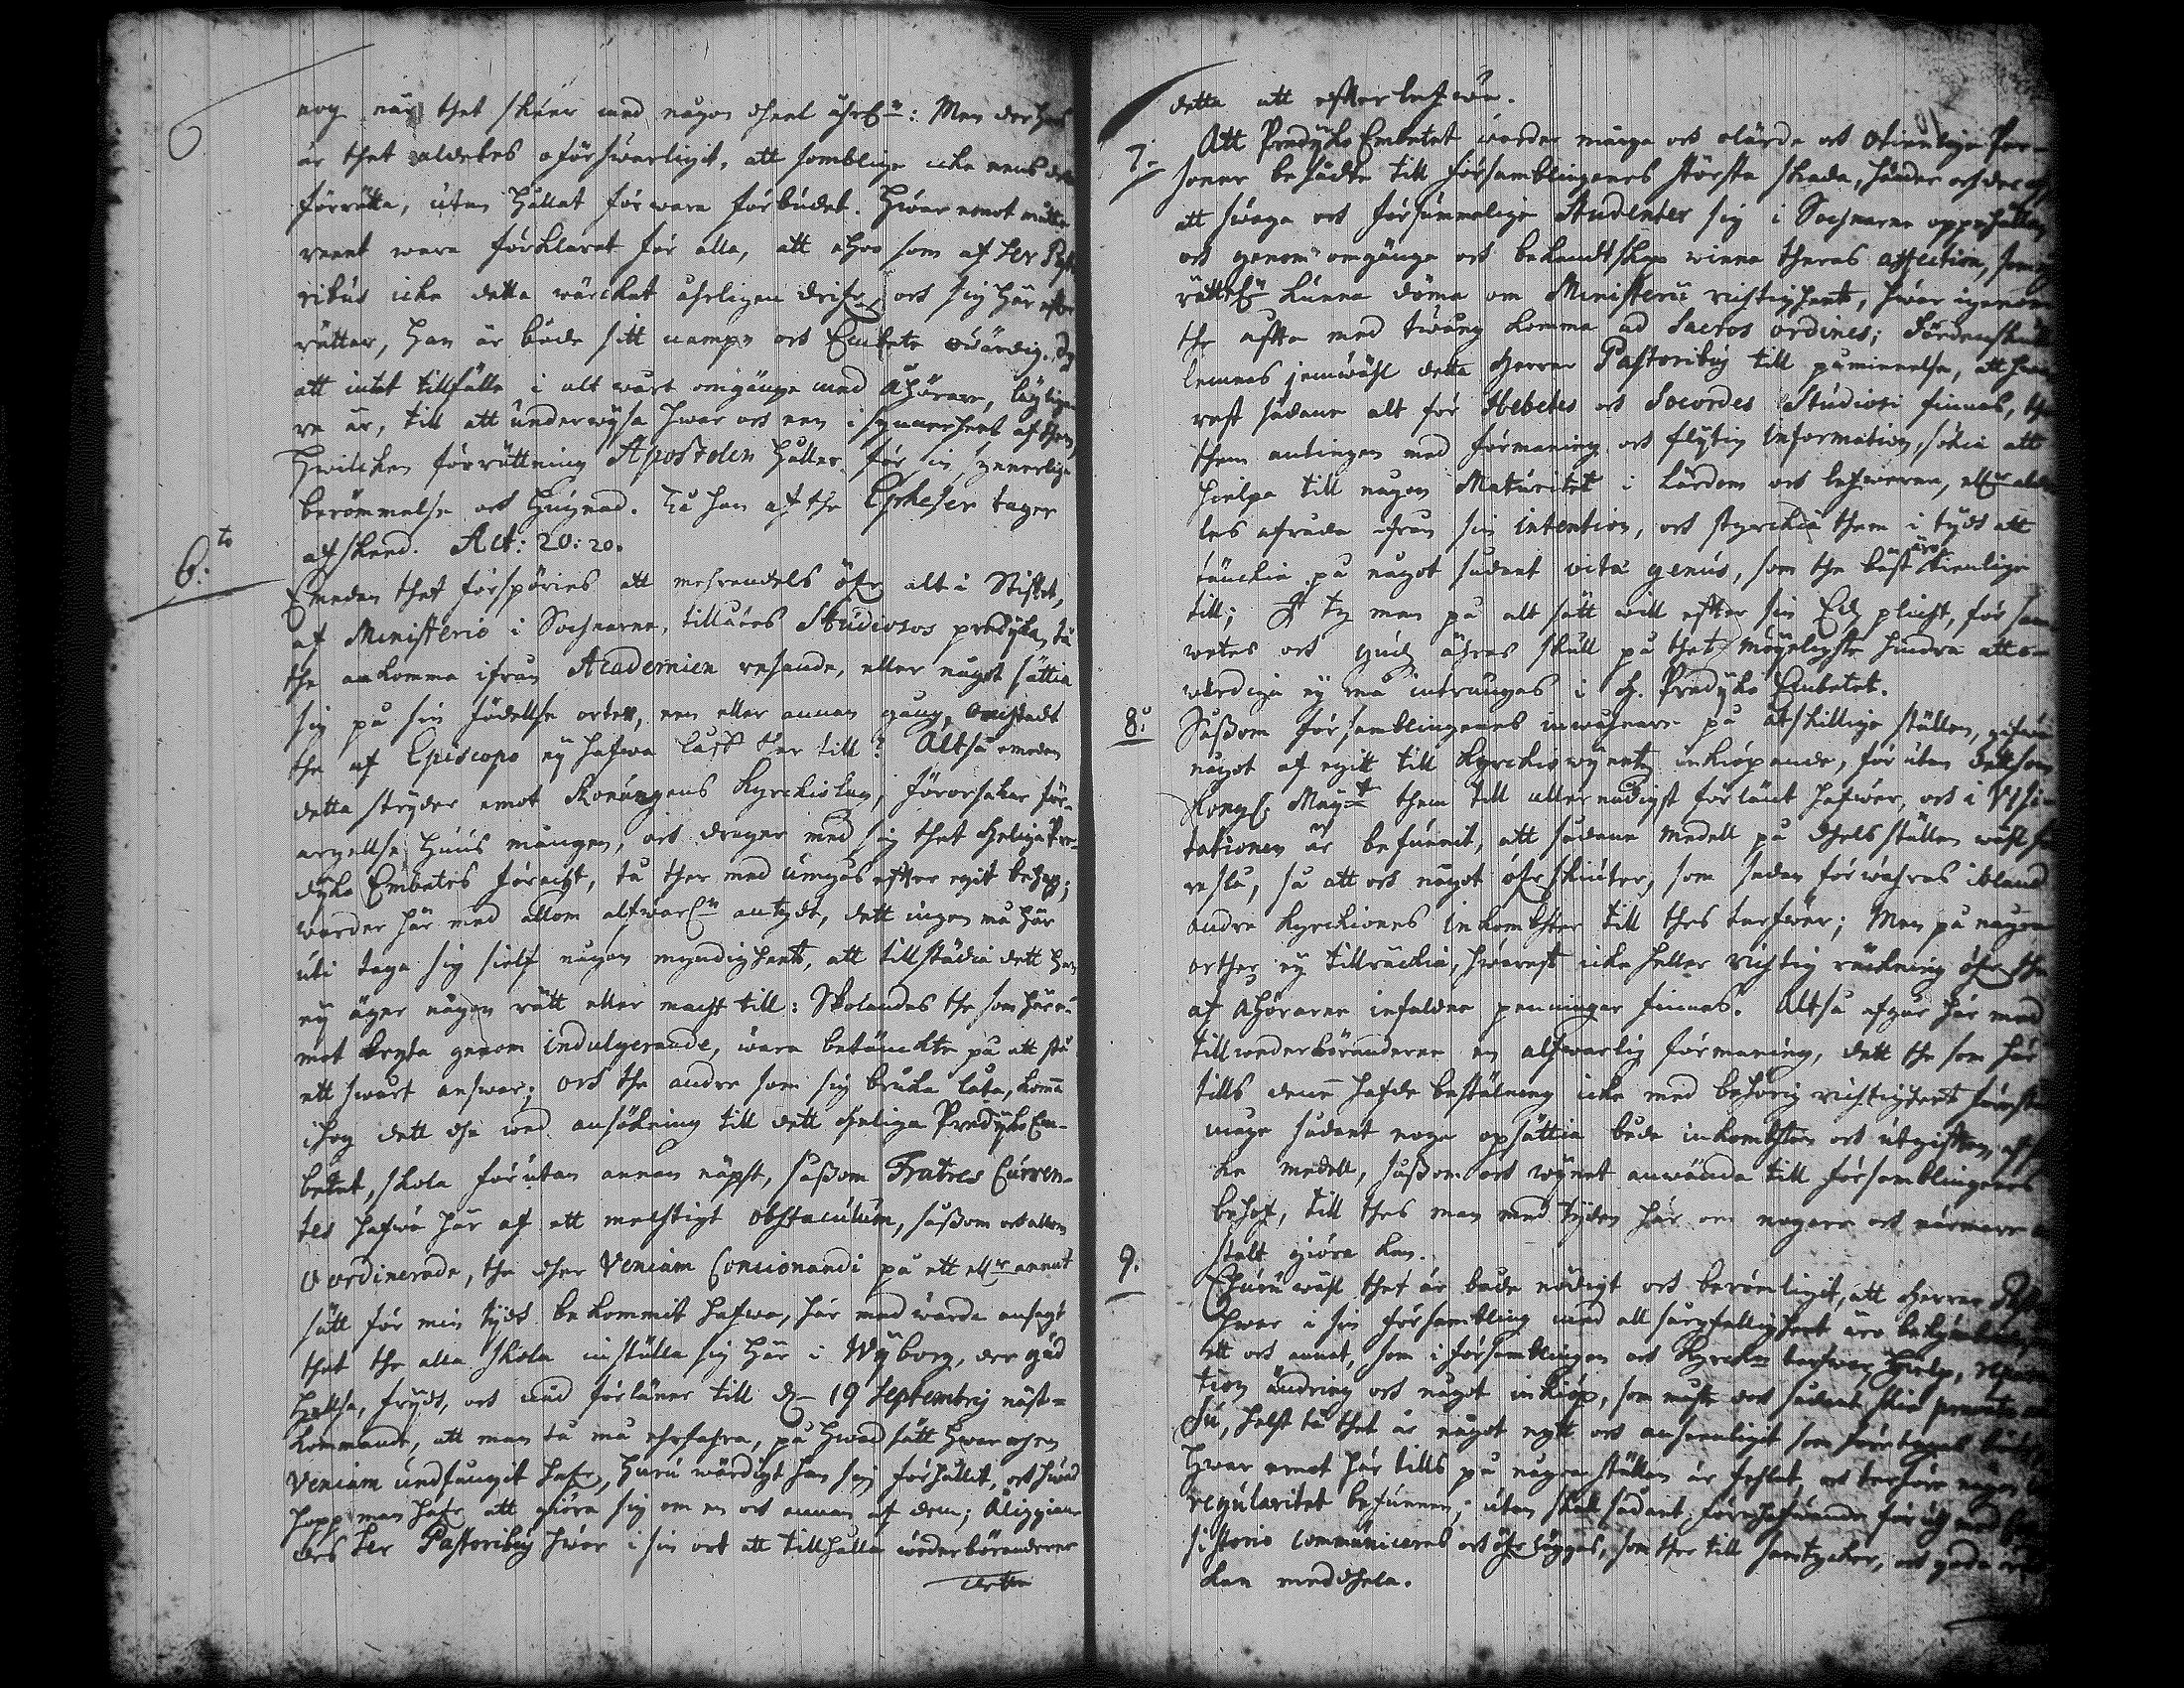 nog när thet skeer med någon deel åhrl:n: Men der hos
är thet aldeles oförswarligit, att somblige icke eens dett
förrätta, utan hållat för wara förbudet. Hwar emot måtte
weet wara förklarat för alla, att ehoo som af Her Past
ribus icke detta wärcket ährligen drifr, och sig här efter
rättar, han är både sitt nampn och Embete owärdig. Ty
att intet tillfälle i alt wårt omgänge med Åhörare, läglige
re är, till att underwysa hwar och een i synnerheet af them,
hwilcken förrättning Apostolen håller för sin synnerlige
berömmelse och hugnad. Tå han af the Epheser tager
afskeed. Act: 20: 20.
6:to
Emedan thet förspöries att mehrendels öfr alt i Stiftet,
af Ministerio i Sochnarne, tillåtes Studiosos predyka, tå
the ankomma ifrån Academien resande, eller något sättia
sig på sin födellse orten, een eller annan gång, oansedt
the af Episcopo ey hafwa låff ther till: Altså emedan
detta stryder emot Konungens Kyrckiolag, förorsakar för-
argellse huus mången, och drager med sig thet helige Pre-
dyko Embetes föracht, tå ther med umgås efter egit behag;
warder här med allom alfwarl:n antydt, dett ingen må här
uti taga sig sielf någon myndigheet, att tillstädia dett han
ey äger någon rätt eller macht till: Skolandes the som häre-
mot bryta genom indulgerande, wara betänckte på att stå
ett swart answar; och the andre som sig bruka låta, komma
ihog dett the wed ansökning till dett heliga Predyko Em-
betet, skola förutan annan näpst, såsom Fratres Curren-
tes hafwa här af ett mechtigt obstaculum, såsom och allom
Oordinerade, the ther Veniam Concionandi på ett ell:r annat
sätt för min tyd bekommit hafwa, här med warda ansagt
thet the alla skola inställa sig här i Wyborg, der gud
hellsa, fryd, och nåd förlänar till d. 19 Septembris näst-
kommande, att man tå må ehrfahra, på hwad sätt hwar och en
Veniam undfångit hafr, huru wärdigt han sig förhållit, och hwad
hopp man hafr att giöra sig om en och annan af dem; Åliggian-
des Her Pastoribus hwar i sin ort att tillhålla wederbörandene
detta
detta att efterlefwa.
7.
Att Predyko Embetet warder många och olärde och otienlige Per-
soner besådte till församblingenes största skada, händer och der af
att swaga och försummelige Studenter sig i Sochnarne oppehålla,
och genom omgänge och bekandtskap winna theras affection, som ey
rättel:n kunna döma om Ministerii richtigheet, hwar igenom
the ofta med twång komma ad sacros ordines; Fördenskull
lemnas jemwähl detta Herrar Pastoribus till påminnelse, att hwar
rest sådane alt för Hebetes och Socordes Studiosi finnas, the
them antingen med förmaning och flytig information, sökia att
hielpa till någon Maturitet i lärdom och lefwerne, ell:r alde
les afråda ifrån sin intention, och styrckia them i tyd att
täncka på något sådant vitæ genus, som the bäst äro tienlige
till; Ty man på alt sätt will efter sin Eds plicht, för sam
wetes och guds ähres skull på thet möyeligste hindra att o-
wärdiga ey må intrungas i H. Predyko Embetet.
8:o
Såsom församblingenes inwåhnare på åtskillige ställen, gifwa
något af egit till Kyrckiowynets inköpande, för utan dett som
Kongl. May:tt them till aller nådigst förlänt hafwer, och i Visi-
tationen är befunnit, att sådane medell på dhels ställen wäl så
reslå, så att och något öfrskiuter, som sedan förwahras ibland
andre Kyrckiones inkombster till thes tarfwer; Men på några
orther ey tillräckia, hwarest icke heller richtig räckning öfr the
af Åhörarne infaldne penningar finnes. Altså afgår här med
till wederbörandene en alfwarlig förmaning, dett the som här
tills denne hafde bestälning icke med behörig richtigheet förestå
måge sådant noga opsättia både inkombsten och utgiften af
ke medell, såsom och wynet anwända till församblingenes
behof, till thes man med tyden här om nogare och närmare
stalt giöra kan.
9.
Ehuruwäl thet är både nödigt och berömligit, att Herrar Past
hwar i sin försambling med all sårgfälligheet äro bekymbrade
ett och annat, som i församblingen och Kyrckian tarfwar hielp,
tion ändring och något inköp, som måste doch sådant skie
su, helst tå thet är något nytt och ansenligit som företages
hwar emot här tills på några ställen är fehlat, och therföre
regularitet befunnen; utan skall sådant förehafwande för
sistorio communiceras och öfrläggas, som ther till samtycker, och goda
kan meddehla.